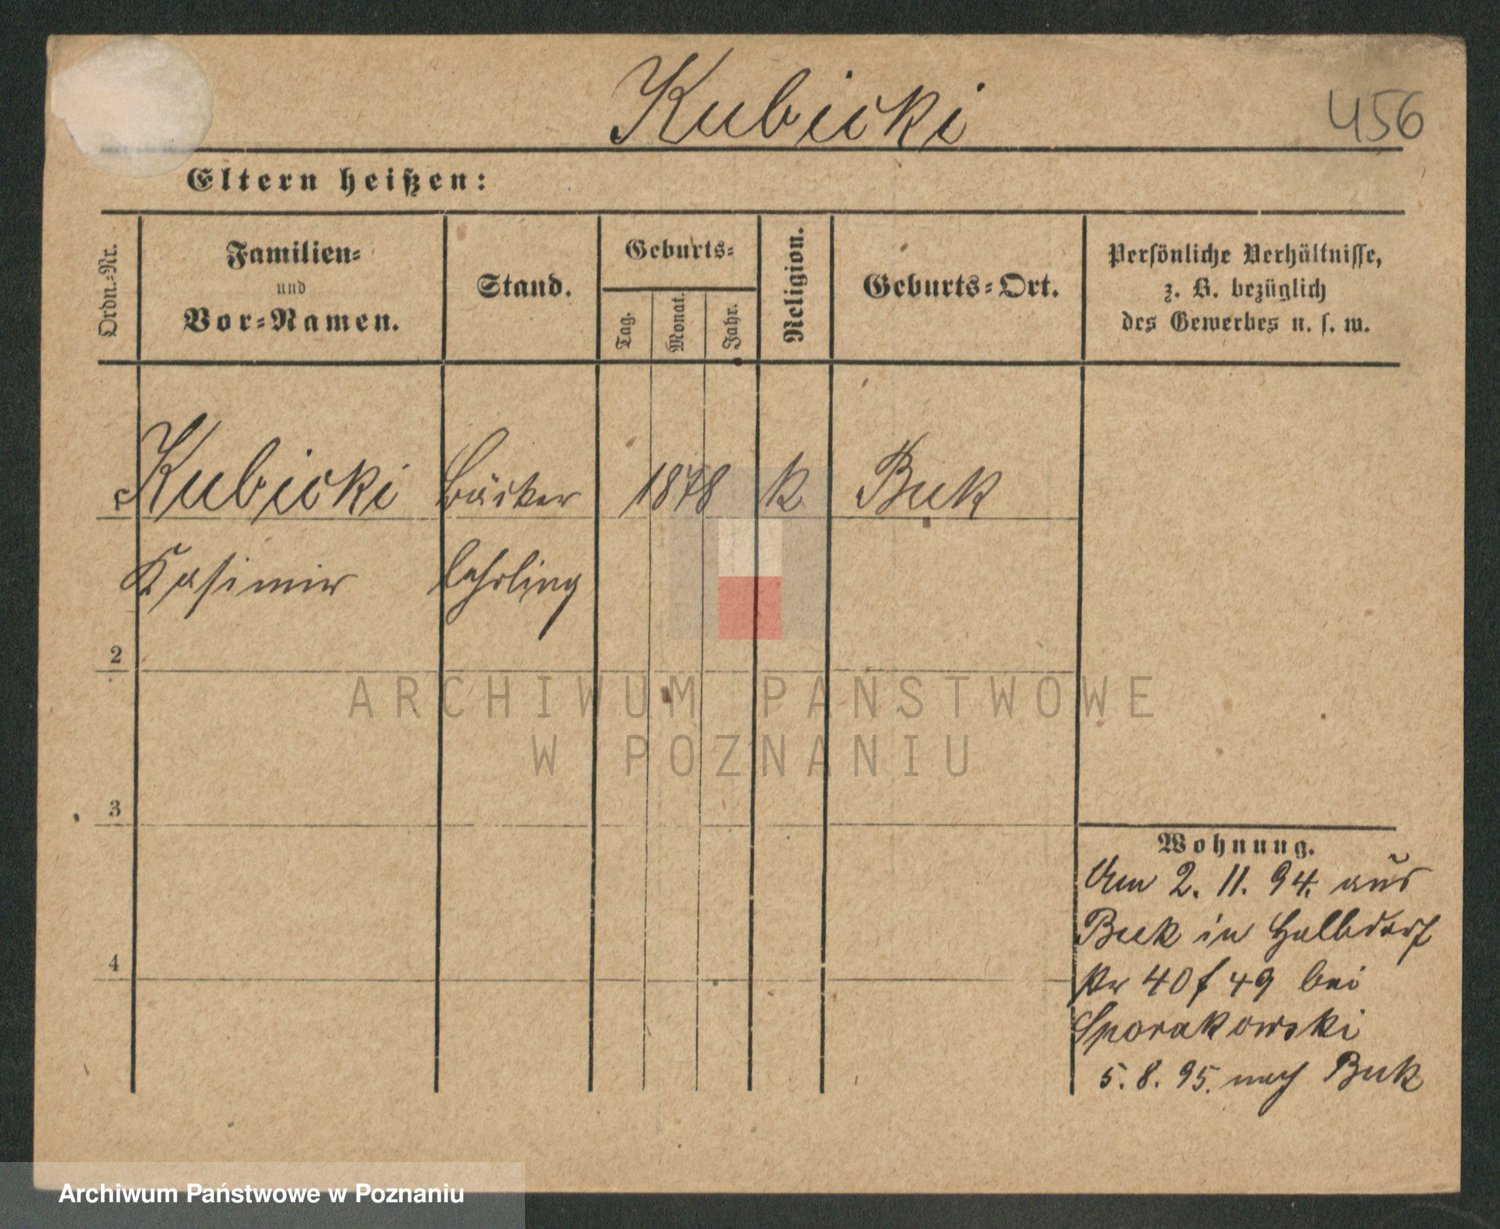 Kubicki
456
Eltern heißen:
Ordn.-Nr.
Familien-
und
Vor-Namen.
Stand.
Geburts-
Tag.
Monat.
Jahr.
Religion.
Geburts-Ort.
Persönliche Verhältnisse,
z. B. bezüglich
des Gewerbes u. s. w.
Kubicki Bäcker 1878 k Buk
Kasimir lehrling
2
3
4
Wohnung.
Am 2. 11. 94. aus
Buk in Halbdorf
40 49 bei
Sporakowski
5. 8. 95. nach Buk
ARCHIWUM PAŃSTWOWE
W POZNANIU
Archiwum Państwowe w Poznaniu